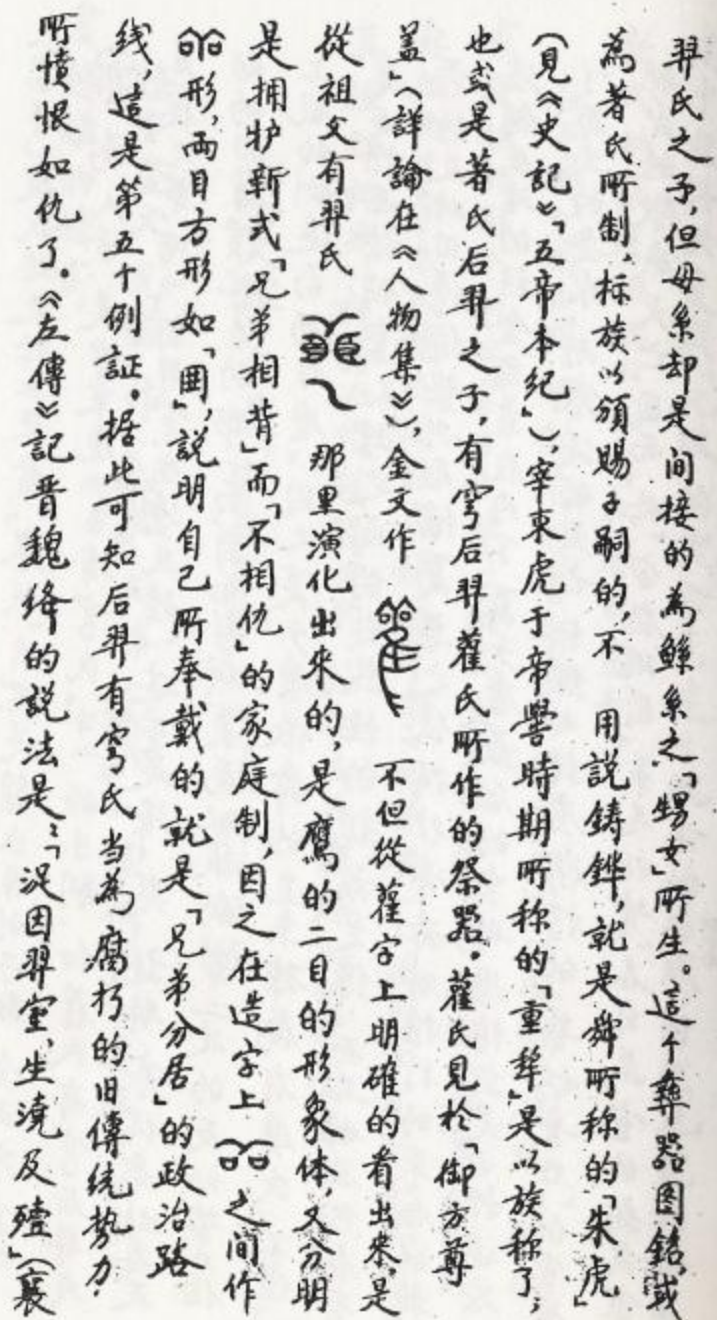 羿氏之子，但母系却是间接的為鯀系之「甥女」所生。這个彝器图銘，或
為著氏所制，标族以頒賜子嗣的，不用説鋳鏵，就是舜所称的「朱虎」
（見《史記》「五帝本纪」），宰束虎于帝嚳時期所称的「重犂」是以族称了；
也或是著氏后羿之子，有穹后羿雚氏所作的祭器。雚氏見於「御方尊
盖」（詳論在《人物集》），金文作 不但從雚字上明確的看出来，是
從祖父有羿氏 那里演化出来的，是鷹的二目的形象体，又分明
是拥护新式「兄弟相背」而「不相仇」的家庭制，因之在造字上 之间作
形，両目方形如「囬」，説明自己所奉戴的就是「兄弟分居」的政治路
线，這是第五个例証。据此可知后羿有穹氏当為腐朽的旧傳统势力
所憤恨如仇了。《左傳》記晋魏绛的説法是：「浞因羿室，生澆及殪」（襄